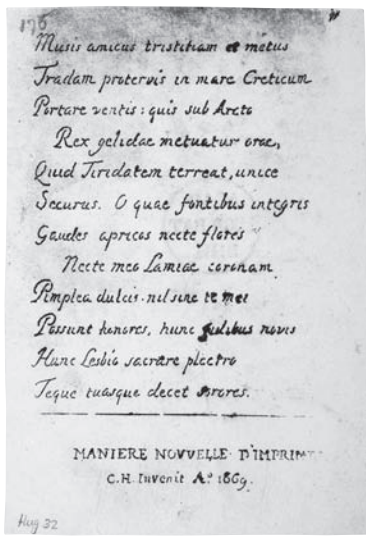 176
Musis amicus tristitiam et metus
Tradam protervis in mare Creticum
Portare ventis: quis sub Arcto
Rex gelidae metuatur orae,
Quid Tiridatem terreat, unice
Securus. O quae fontibus integris
Gaudes apricos necte flores
Necte meo Lamiae coronam
Pimplea dulcis. nil sine te mei
Possunt honores, hunc fidibus novis
Hunc Lesbio sacrare plectro
Teque tuasque decet sorores.
MANIERE NOVVELLE D'IMPRIM
C.H. Invenit Aº 1669.
Hug 32